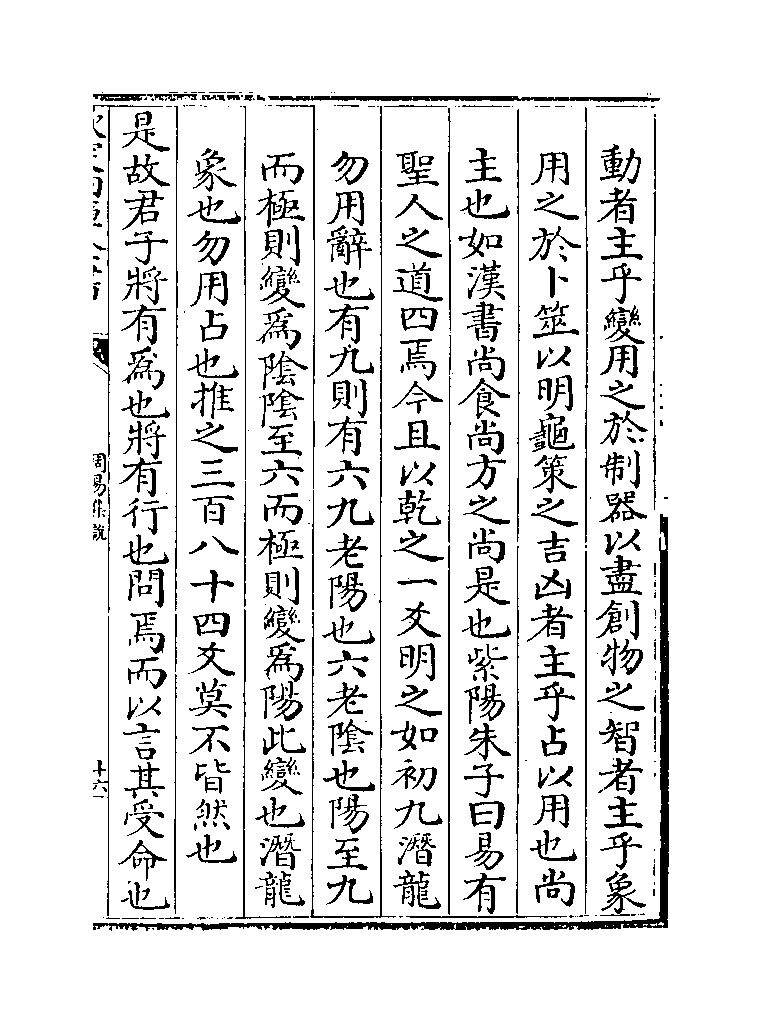 動者主乎變用之於制器以盡創物之智者主乎象
用之於卜筮以明龜策之吉凶者主乎占以用也尚
主也如漢書尚食尚方之尚是也紫陽朱子曰易有
聖人之道四焉今且以乾之一爻明之如初九潛龍
勿用辭也有九則有六九老陽也六老陰也陽至九
而極則變爲陰陰至六而極則變爲陽此變也潛龍
象也勿用占也推之三百八十四爻莫不皆然也
是故君子將有爲也將有行也問焉而以言其受命也
周易集說
十六